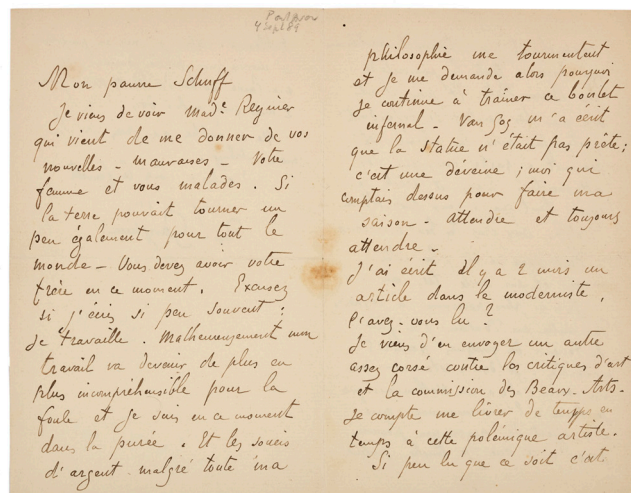 4 Sept 89
Mon pauvre Schuff
Je viens de voir Made Regnier
qui vient de me donner de vos
nouvelles - mauvaises - Votre
femme et vous malades. Si
la terre pouvait tourner un
peu également pour tout le
monde - Vous devez avoir votre
frère en ce moment. Excusez
si j'écris si peu souvent:
Je travaille. Malheureusement mon
travail va devenir de plus en
plus incompréhensible pour la
foule et je suis en ce moment
dans la purée. Et les soucis
d'argent malgré toute ma
philosophie me tourmentent
et je me demande alors pourquoi
je continue à traîner ce boulet
infernal - Van Gog m'a écrit
que la statue n'était pas prête;
c'est une déveine; moi qui
comptais dessus pour faire ma
saison - attendre et toujours
attendre -
J'ai écrit il y a 2 mois un
article dans le moderniste,
l'avez-vous lu?
Je viens d'en envoyer un autre
assez corsé contre les critiques d'art
et la commission des Beaux-Arts-
Je compte me livrer de temps en
temps à cette polémique artiste.
Si peu lu que ce soit c'est